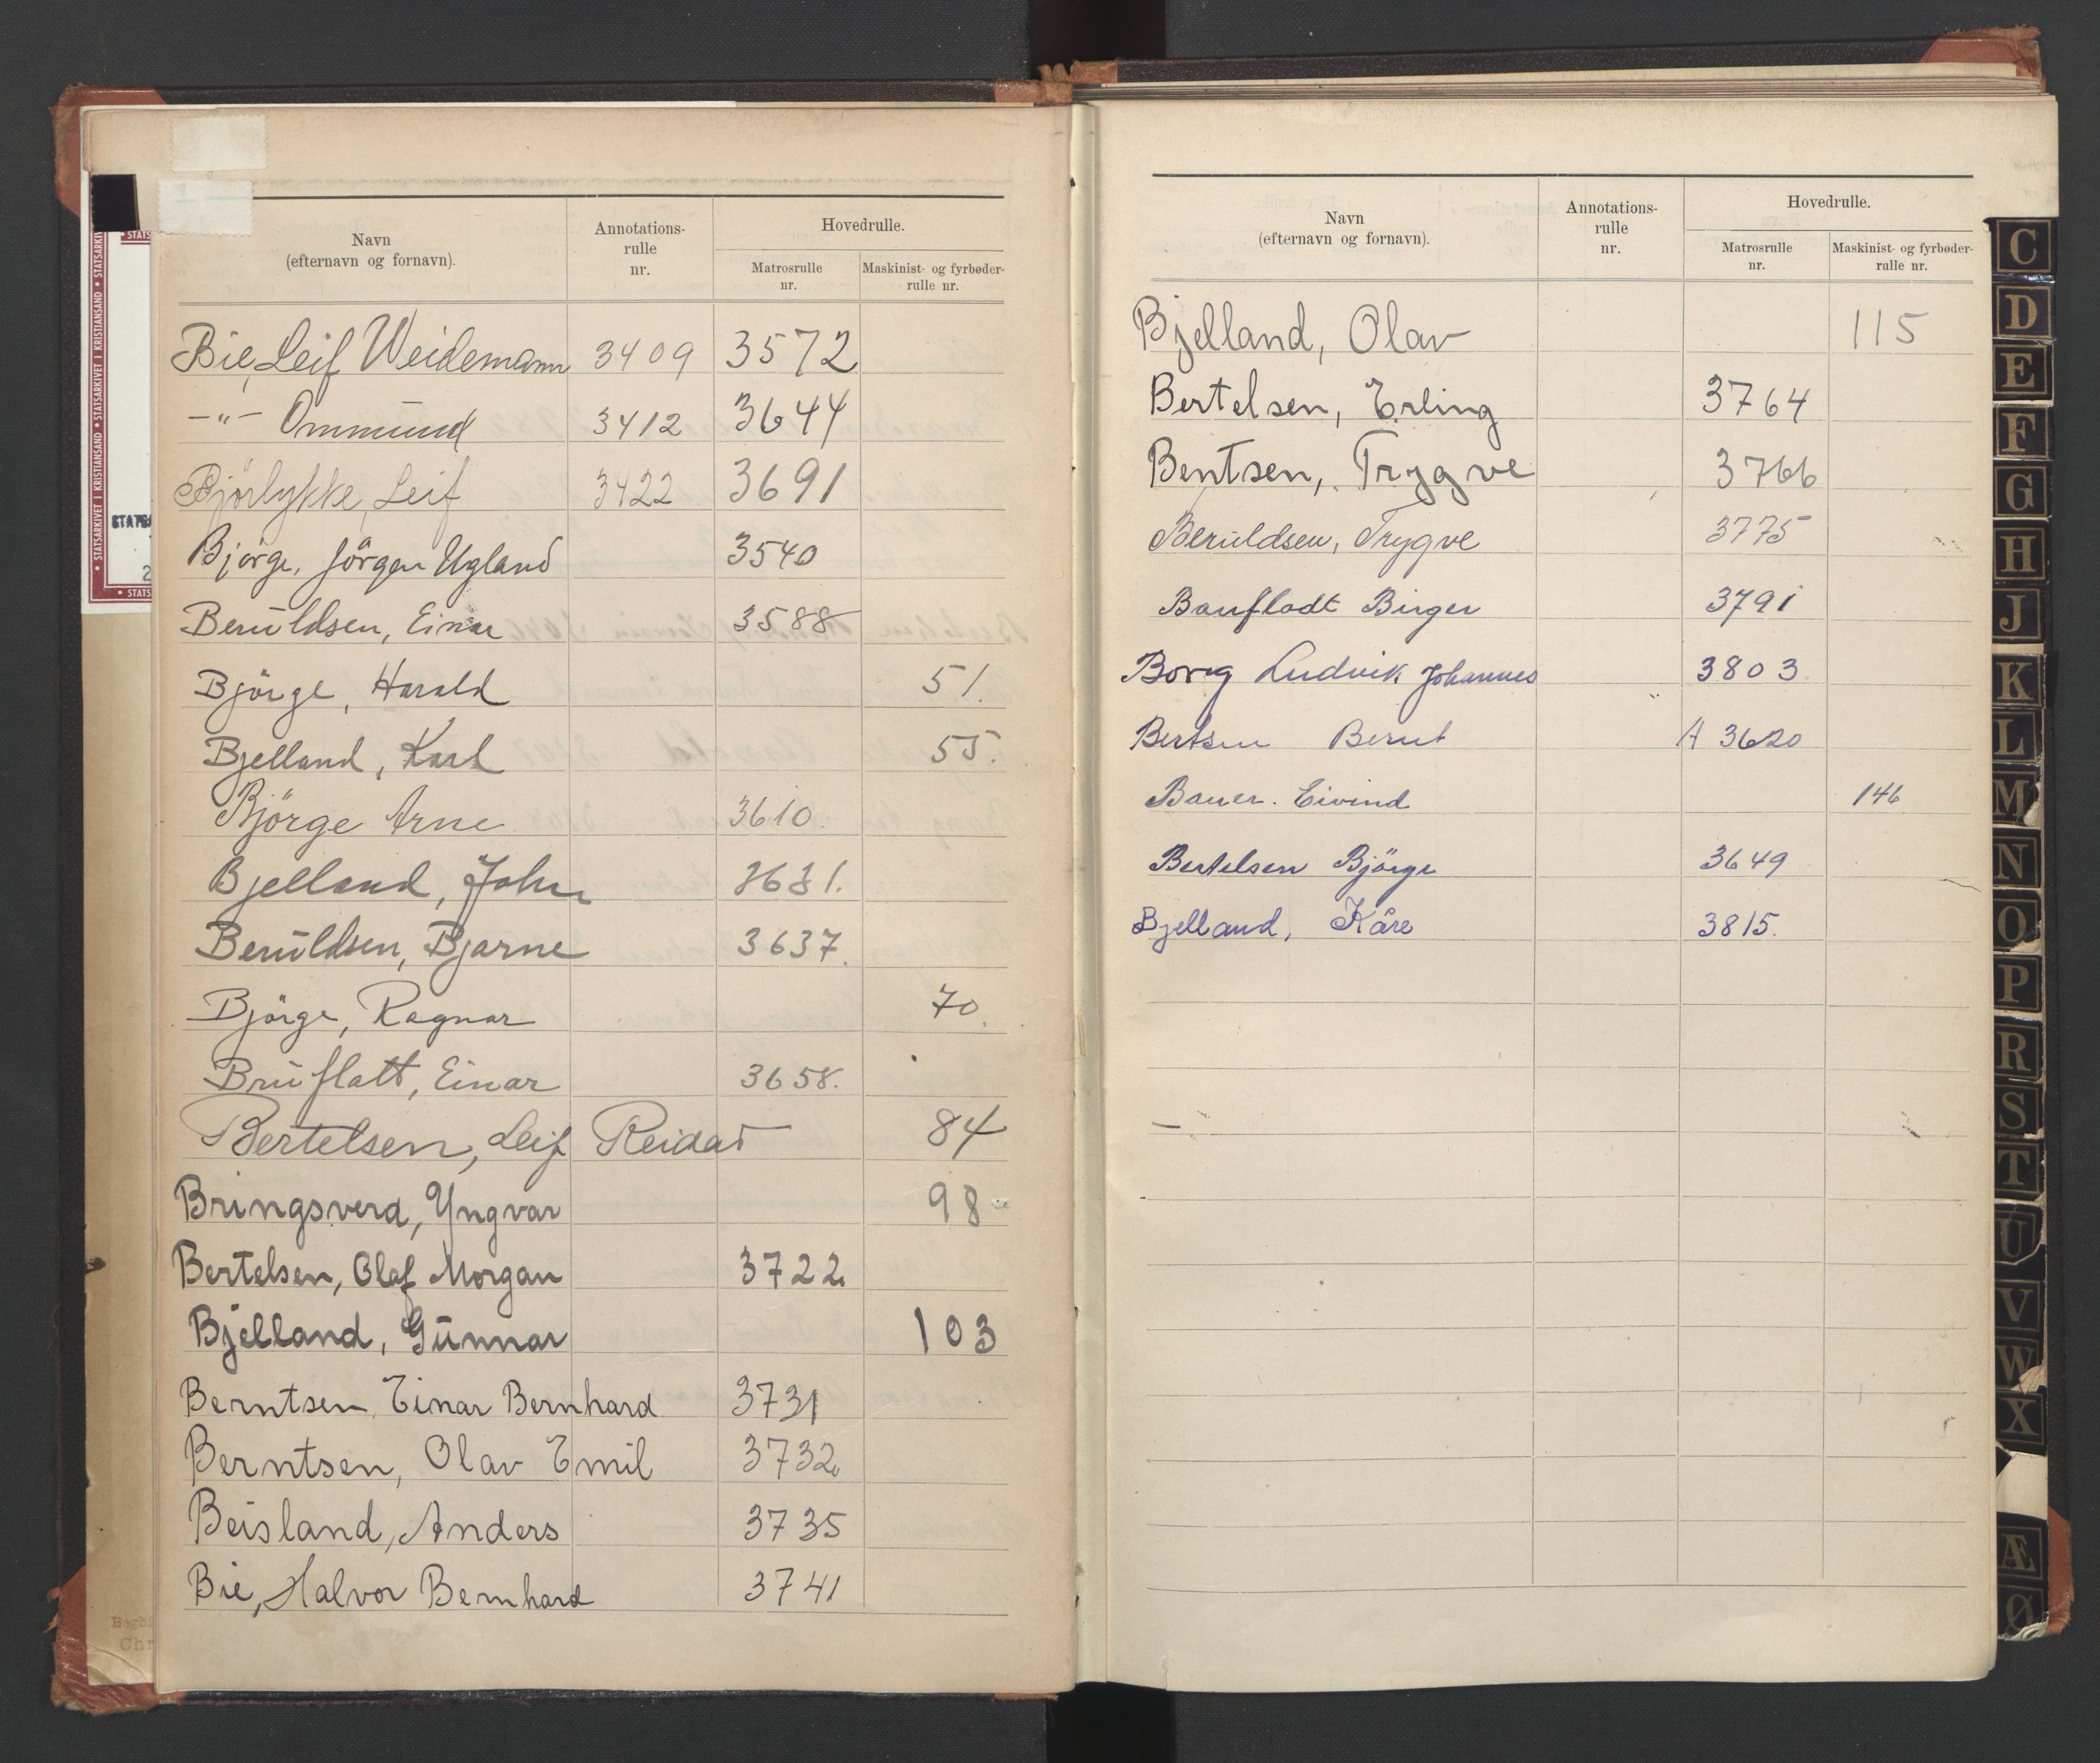 Navn
(efternavn og fornavn).
Annotations-
rulle
nr.
Hovedrulle.
Matrosrulle
nr.
Maskinist- og fyrbøder-
rulle nr.
Bie, Leif Weidemann 3409 3572
-"- Ommund 3412 3644
Bjørlykke, Leif 3422 3691
Björge, Jörgen Ugland 3540
Beruldsen, Einar 3588
Björge, Harald 51.
Bjelland, Karl 55.
Björge Arne 3610.
Bjelland, John 3631.
Beruldsen, Bjarne 3637.
Björge, Ragnar 70.
Bruflatt, Einar 3658.
Bertelsen, Leif Reidar 84
Bringsverd, Yngvar 98
Bertelsen, Olaf Morgan 3722
Bjelland, Gunnar 103
Berntsen, Einar Bernhard 3731
Berntsen, Olav Emil 3732
Beisland, Anders 3735
Bie, Halvor Bernhard 3741
Navn
(efternavn og fornavn).
Annotations-
rulle
nr.
Hovedrulle.
Matrosrulle
nr.
Maskinist- og fyrbøder-
rulle nr.
Bjelland, Olav 115
Bertelsen, Erling 3764
Bentsen, Trygve 3766
Beruldsen, Trygve 3775
Birger 3791
Borg Ludvik Johannes 3803
Bertsen Bernt A 3620
Bauer. Eivind 146
Bertelsen Björge 3649
Bjelland, Kåre 3815.
C
D
E
F
G
H
J
K
L
M
N
O
P
R
S
T
U
V
W
X
Æ
Ø
STATSARKIVET I KRISTIANSAND • STATSARKIVET I KRISTIANSAND • STATSARKIV